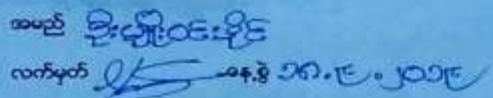 အမည် ဦးမျိုးဝင်းနိုင်
လက်မှတ် နေ့စွဲ ၁၈.၉.၂၀၁၉